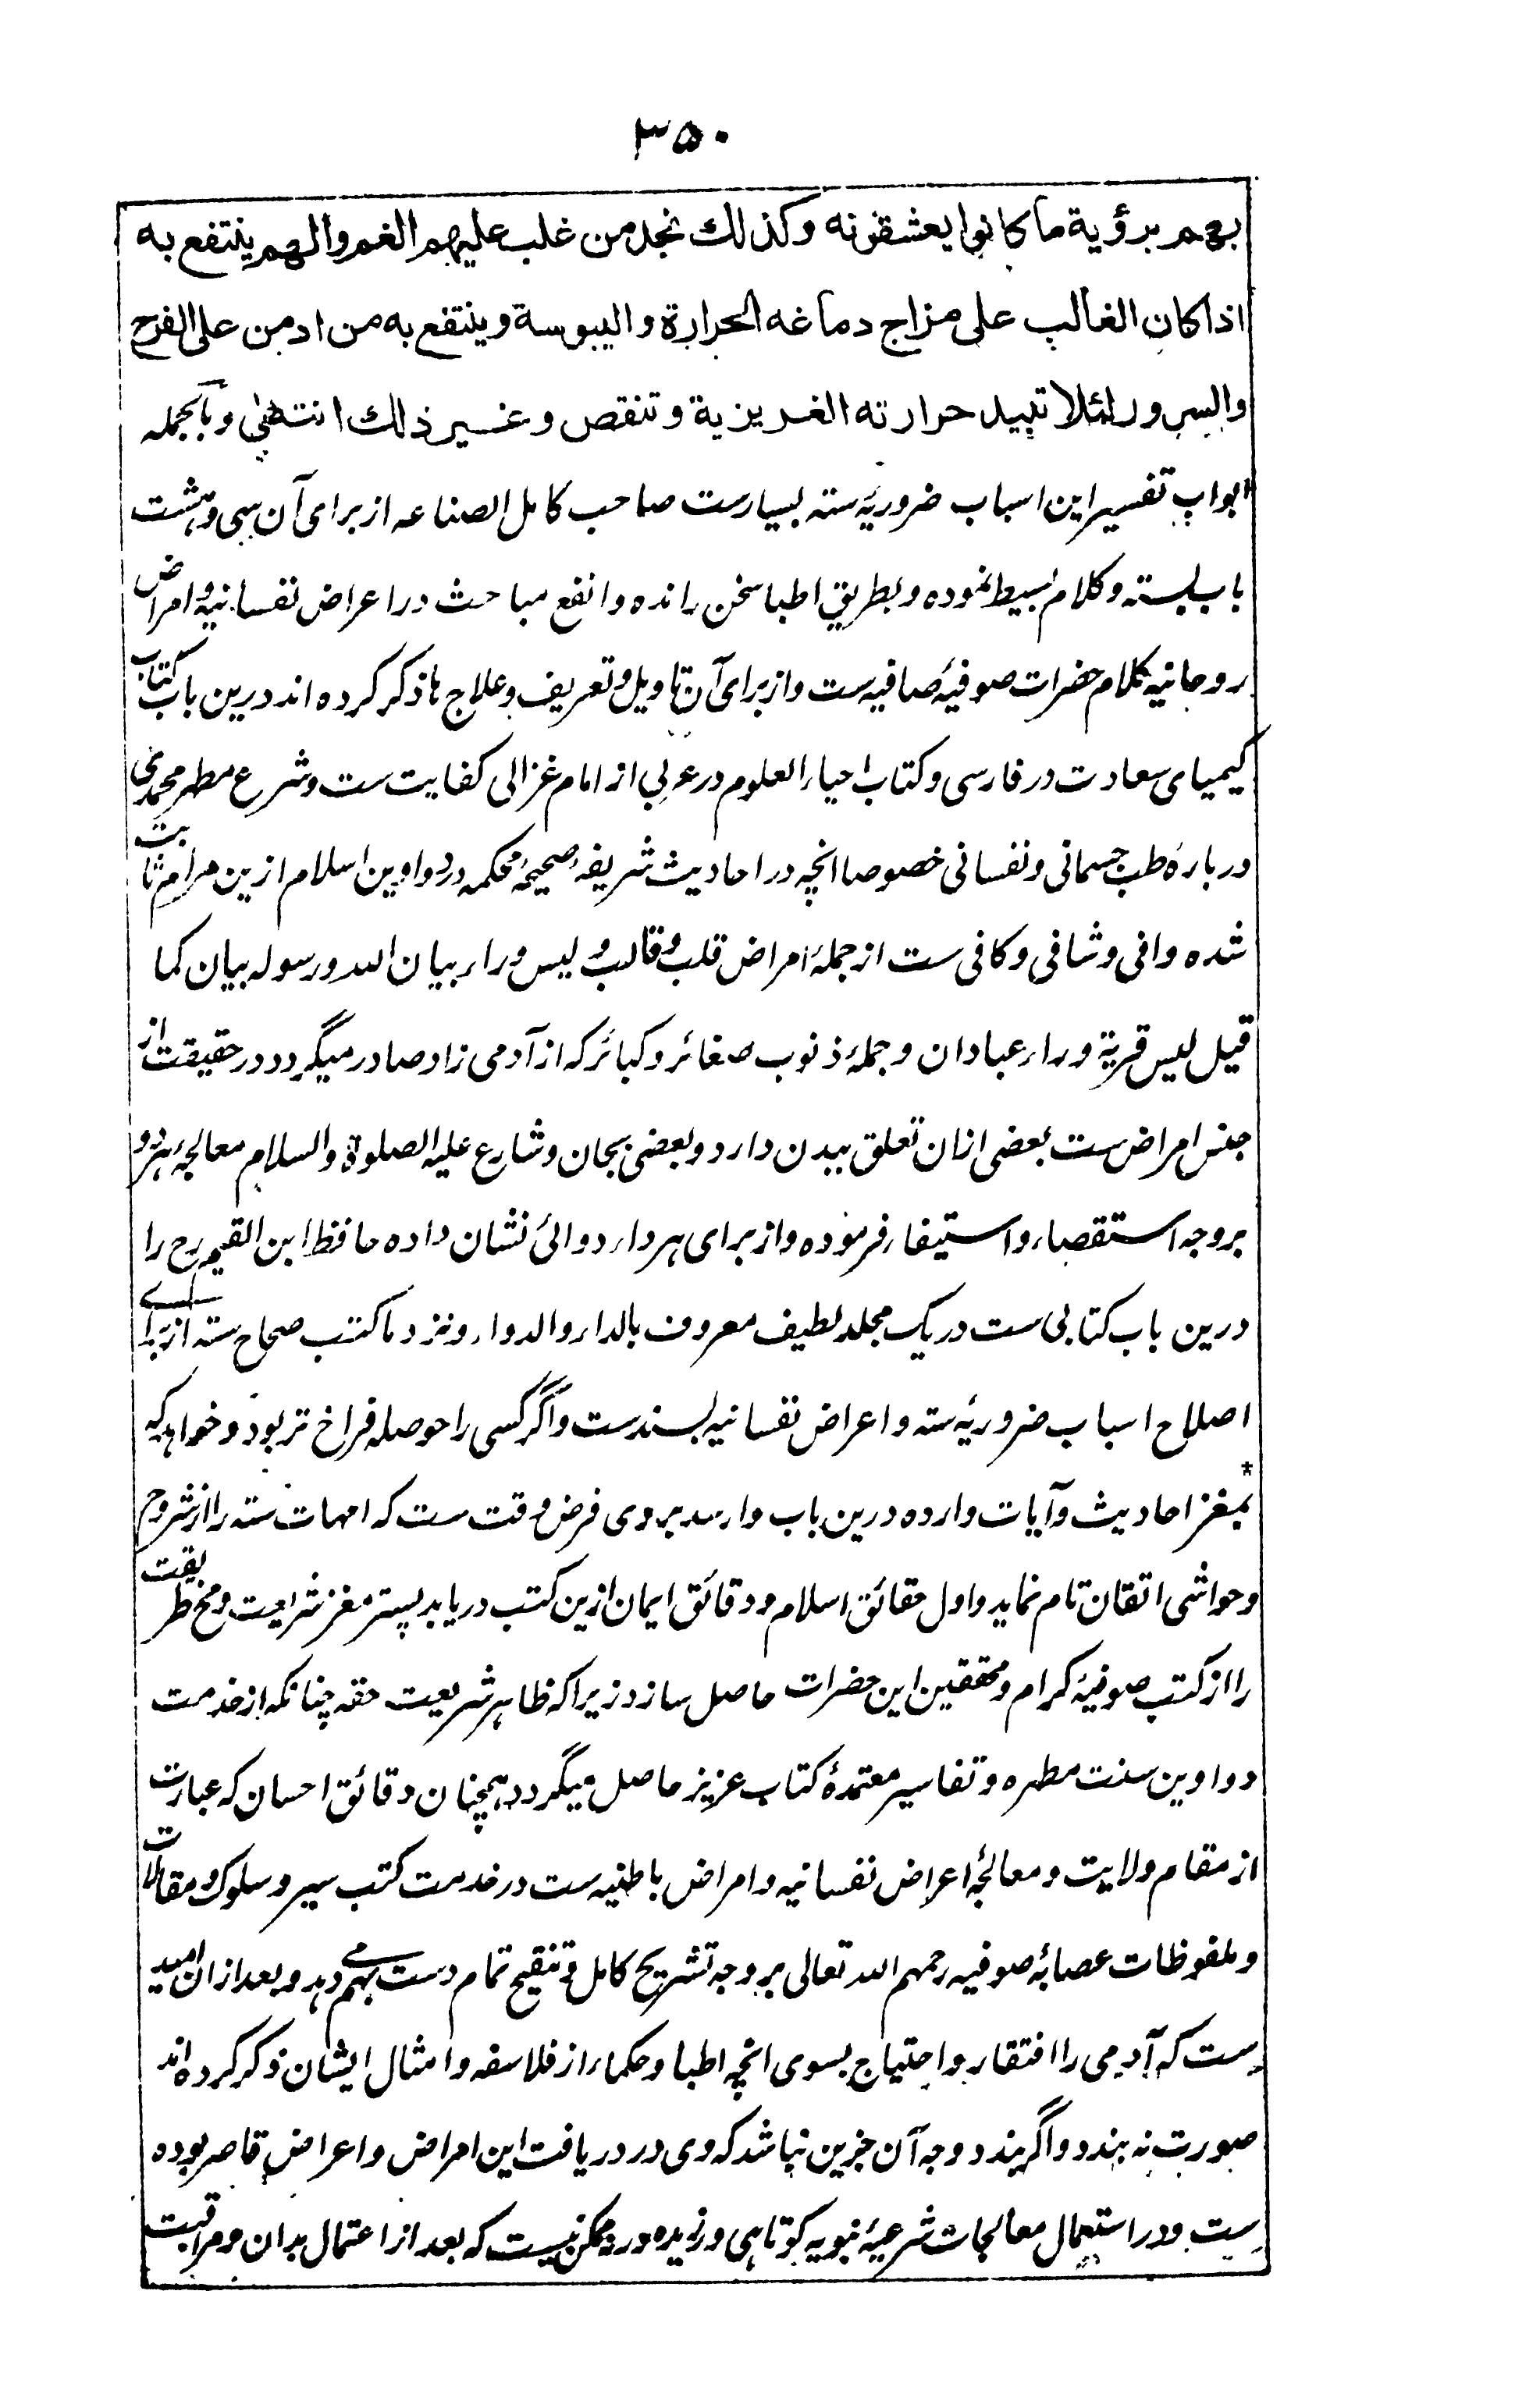 ۳۵۰
بهم برؤية ما كانوا يعشقونه وكذلك نجد من غلب عليهم الغم والهم ينتفع به
اذا كان الغالب على مزاج دماغه الحرارة واليبوسة وينتفع به من ادمن على الفرح
والسرور لئلا تبيد حرارته الغريزية وتنقص وغير ذلك انتهى وبالجمله
ابواب تفسير این اسباب ضروریهٔ سته بسیارست صاحب کامل الصناعه از برای آن سی وهشت
باب بسته وکلام بسیط نموده وبطریق اطبا سخن رانده وانفع مباحث در اعراض نفسانیه وامراض
روحانیه کلام حضرات صوفیهٔ صافیه ست واز برای آن تاویل وتعریف وعلاج ها ذکر کرده اند درین باب کتاب
کیمیای سعادت در فارسی وکتاب احیاء العلوم در عربی از امام غزالی کفایت ست وشرع مطهر محمدی
دربارهٔ طب جسمانی ونفسانی خصوصا انچه در احادیث شریفهٔ صحیحهٔ محکمه در دواوین اسلام ازین مرام ثابت
شده وافی وشافی وکافی ست از جملهٔ امراض قلب وقالب ولیس وراء بیان الله ورسوله بیان کما
قیل لیس قریة وراء عبادان وجملهٔ ذنوب صغائر وکبائر که از آدمی زاد صادر میگردد در حقیقت از
جنس امراض ست بعضی ازان تعلق ببدن دارد وبعضی بجان وشارع علیه الصلوة والسلام معالجهٔ هر دو
بروجه استقصاء واستیفاء فرموده واز برای هر داء دوائی نشان داده حافظ ابن القیم رح را
درین باب کتابی ست در یک مجلد لطیف معروف بالداء والدواء ونزد ما کتب صحاح سته از برای
اصلاح اسباب ضروریهٔ سته واعراض نفسانیه بسندست واگر کسی را حوصله فراخ تر بود وخواهد که
بمغز احادیث وآیات وارده درین باب وارسد بر وی فرض وقت ست که امهات سته را از شروح
وحواشی اتقان تام نماید واول حقائق اسلام ودقائق ایمان ازین کتب دریابد پستر مغز شریعت ومخ طریقت
را از کتب صوفیهٔ کرام ومحققین این حضرات حاصل سازد زیرا که ظاهر شریعت حقه چنانکه از خدمت
دواوین سنت مطهره وتفاسیر معتمدهٔ کتاب عزیز حاصل میگردد همچنان دقائق احسان که عبارت
از مقام ولایت ومعالجهٔ اعراض نفسانیه وامراض باطنیه ست در خدمت کتب سیر وسلوک ومقالات
وملفوظات عصابهٔ صوفیه رحمهم الله تعالی بروجه تشریح کامل وتنقیح تمام دست بهم می دهد وبعد ازان امید
ست که آدمی را افتقار واحتیاج بسوی انچه اطبا وحکماء از فلاسفه وامثال ایشان ذکر کرده اند
صورت نه بندد واگر بندد وجه آن جزین نباشد که وی در دریافت این امراض واعراض قاصر بوده
ست ودر استعمال معالجات شرعیهٔ نبویه کوتاهی ورزیده ورنه ممکن نیست که بعد از اعتمال بدان ومراقبت